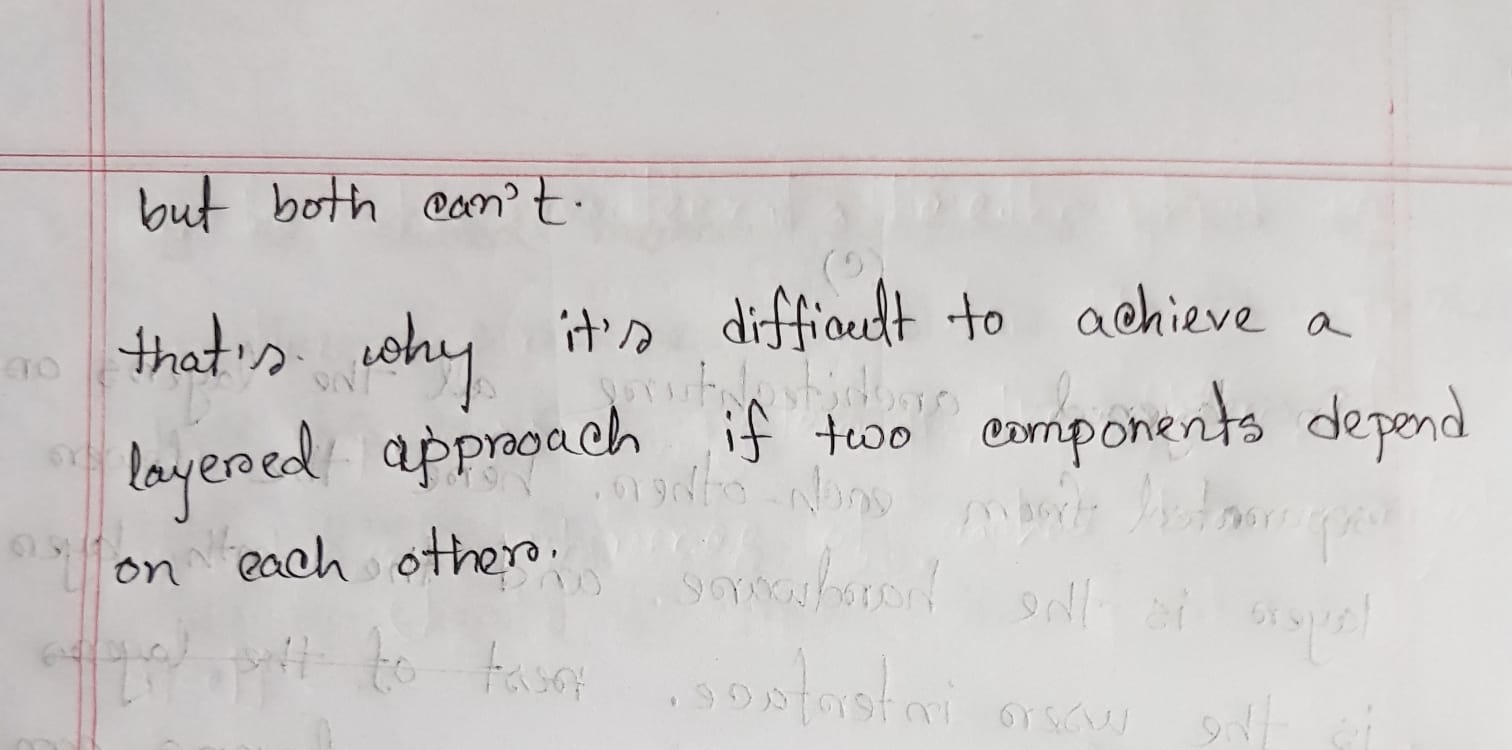 but both can't.
that's why it's difficult to achieve a
layered approach if two components depend
on each other.